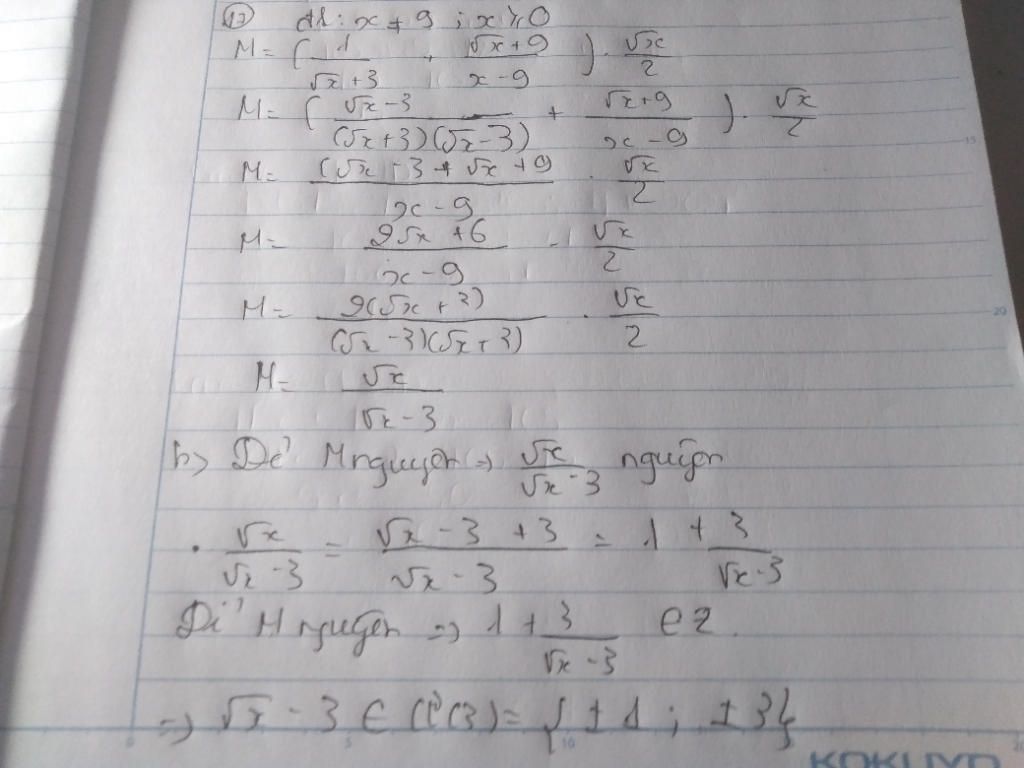 13) đk: x ≠ 9 ; x ≥ 0
M = ( 1/(√x+3) + (√x+9)/(x-9) ) . √x/2
M = ( (√x-3)/((√x+3)(√x-3)) + (√x+9)/(x-9) ) . √x/2
M = (√x - 3 + √x + 9)/(x-9) . √x/2
M = (2√x + 6)/(x-9) . √x/2
M = 2(√x + 3)/((√x-3)(√x+3)) . √x/2
M = √x/(√x-3)
b) Để M nguyên => √x/(√x-3) nguyên
. √x/(√x-3) = (√x - 3 + 3)/(√x-3) = 1 + 3/(√x-3)
Để M nguyên => 1 + 3/(√x-3) ∈ Z.
=> √x - 3 ∈ Ư(3) = { ±1 ; ±3}
KOKUYO